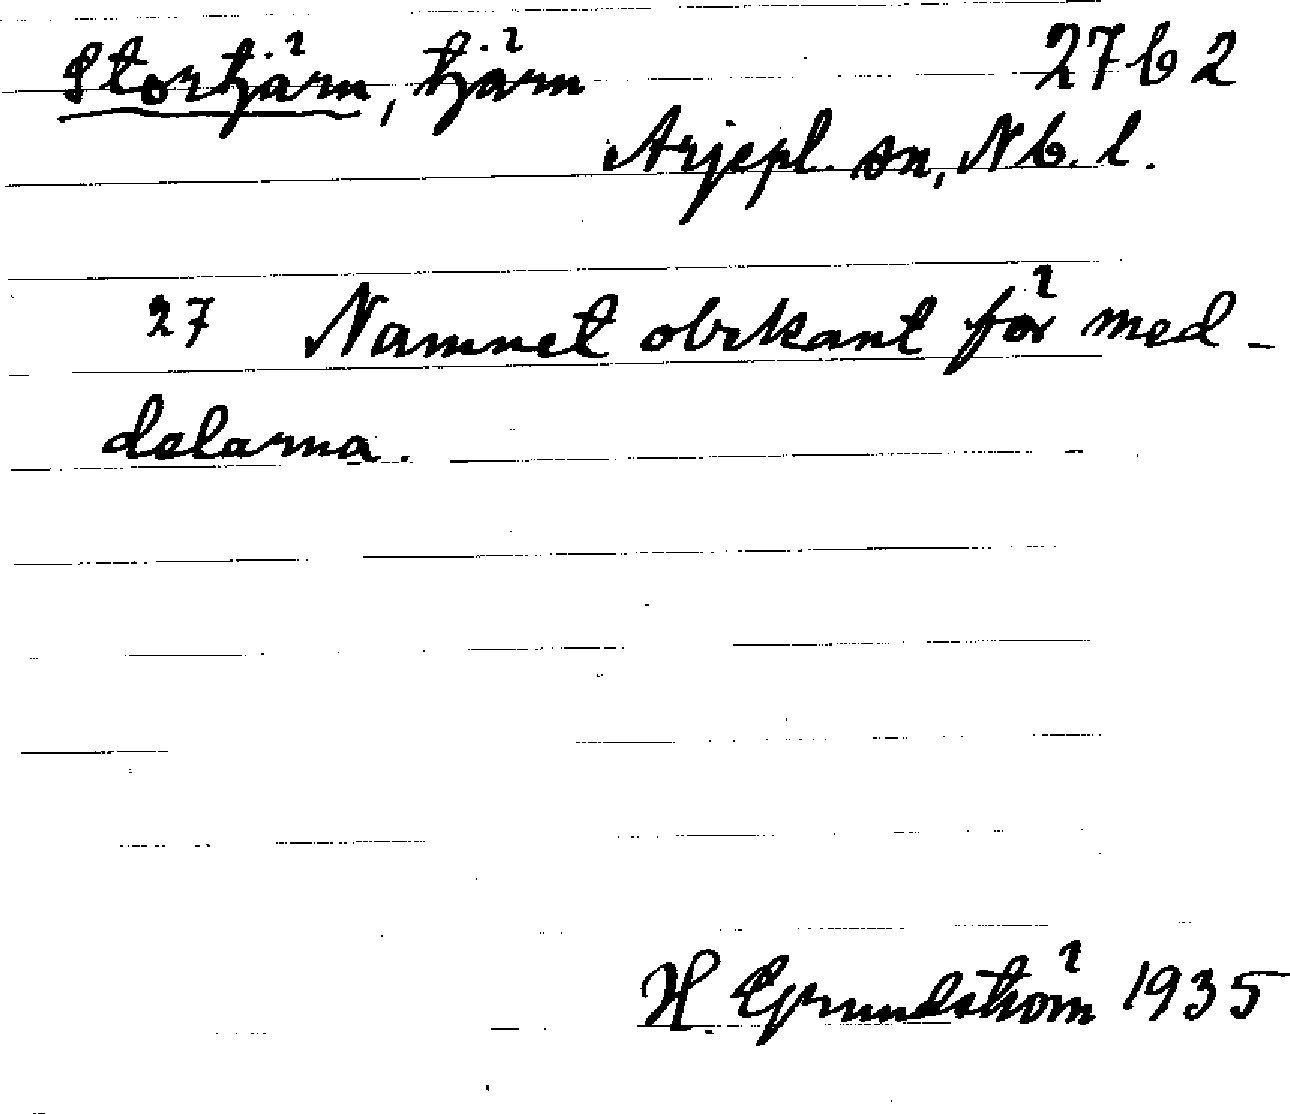 Stortjärn, tjärn 27b2
Arjepl. sn, Nb. l.
27 Namnet obekant för med-
delarna.
H. Grundström 1935